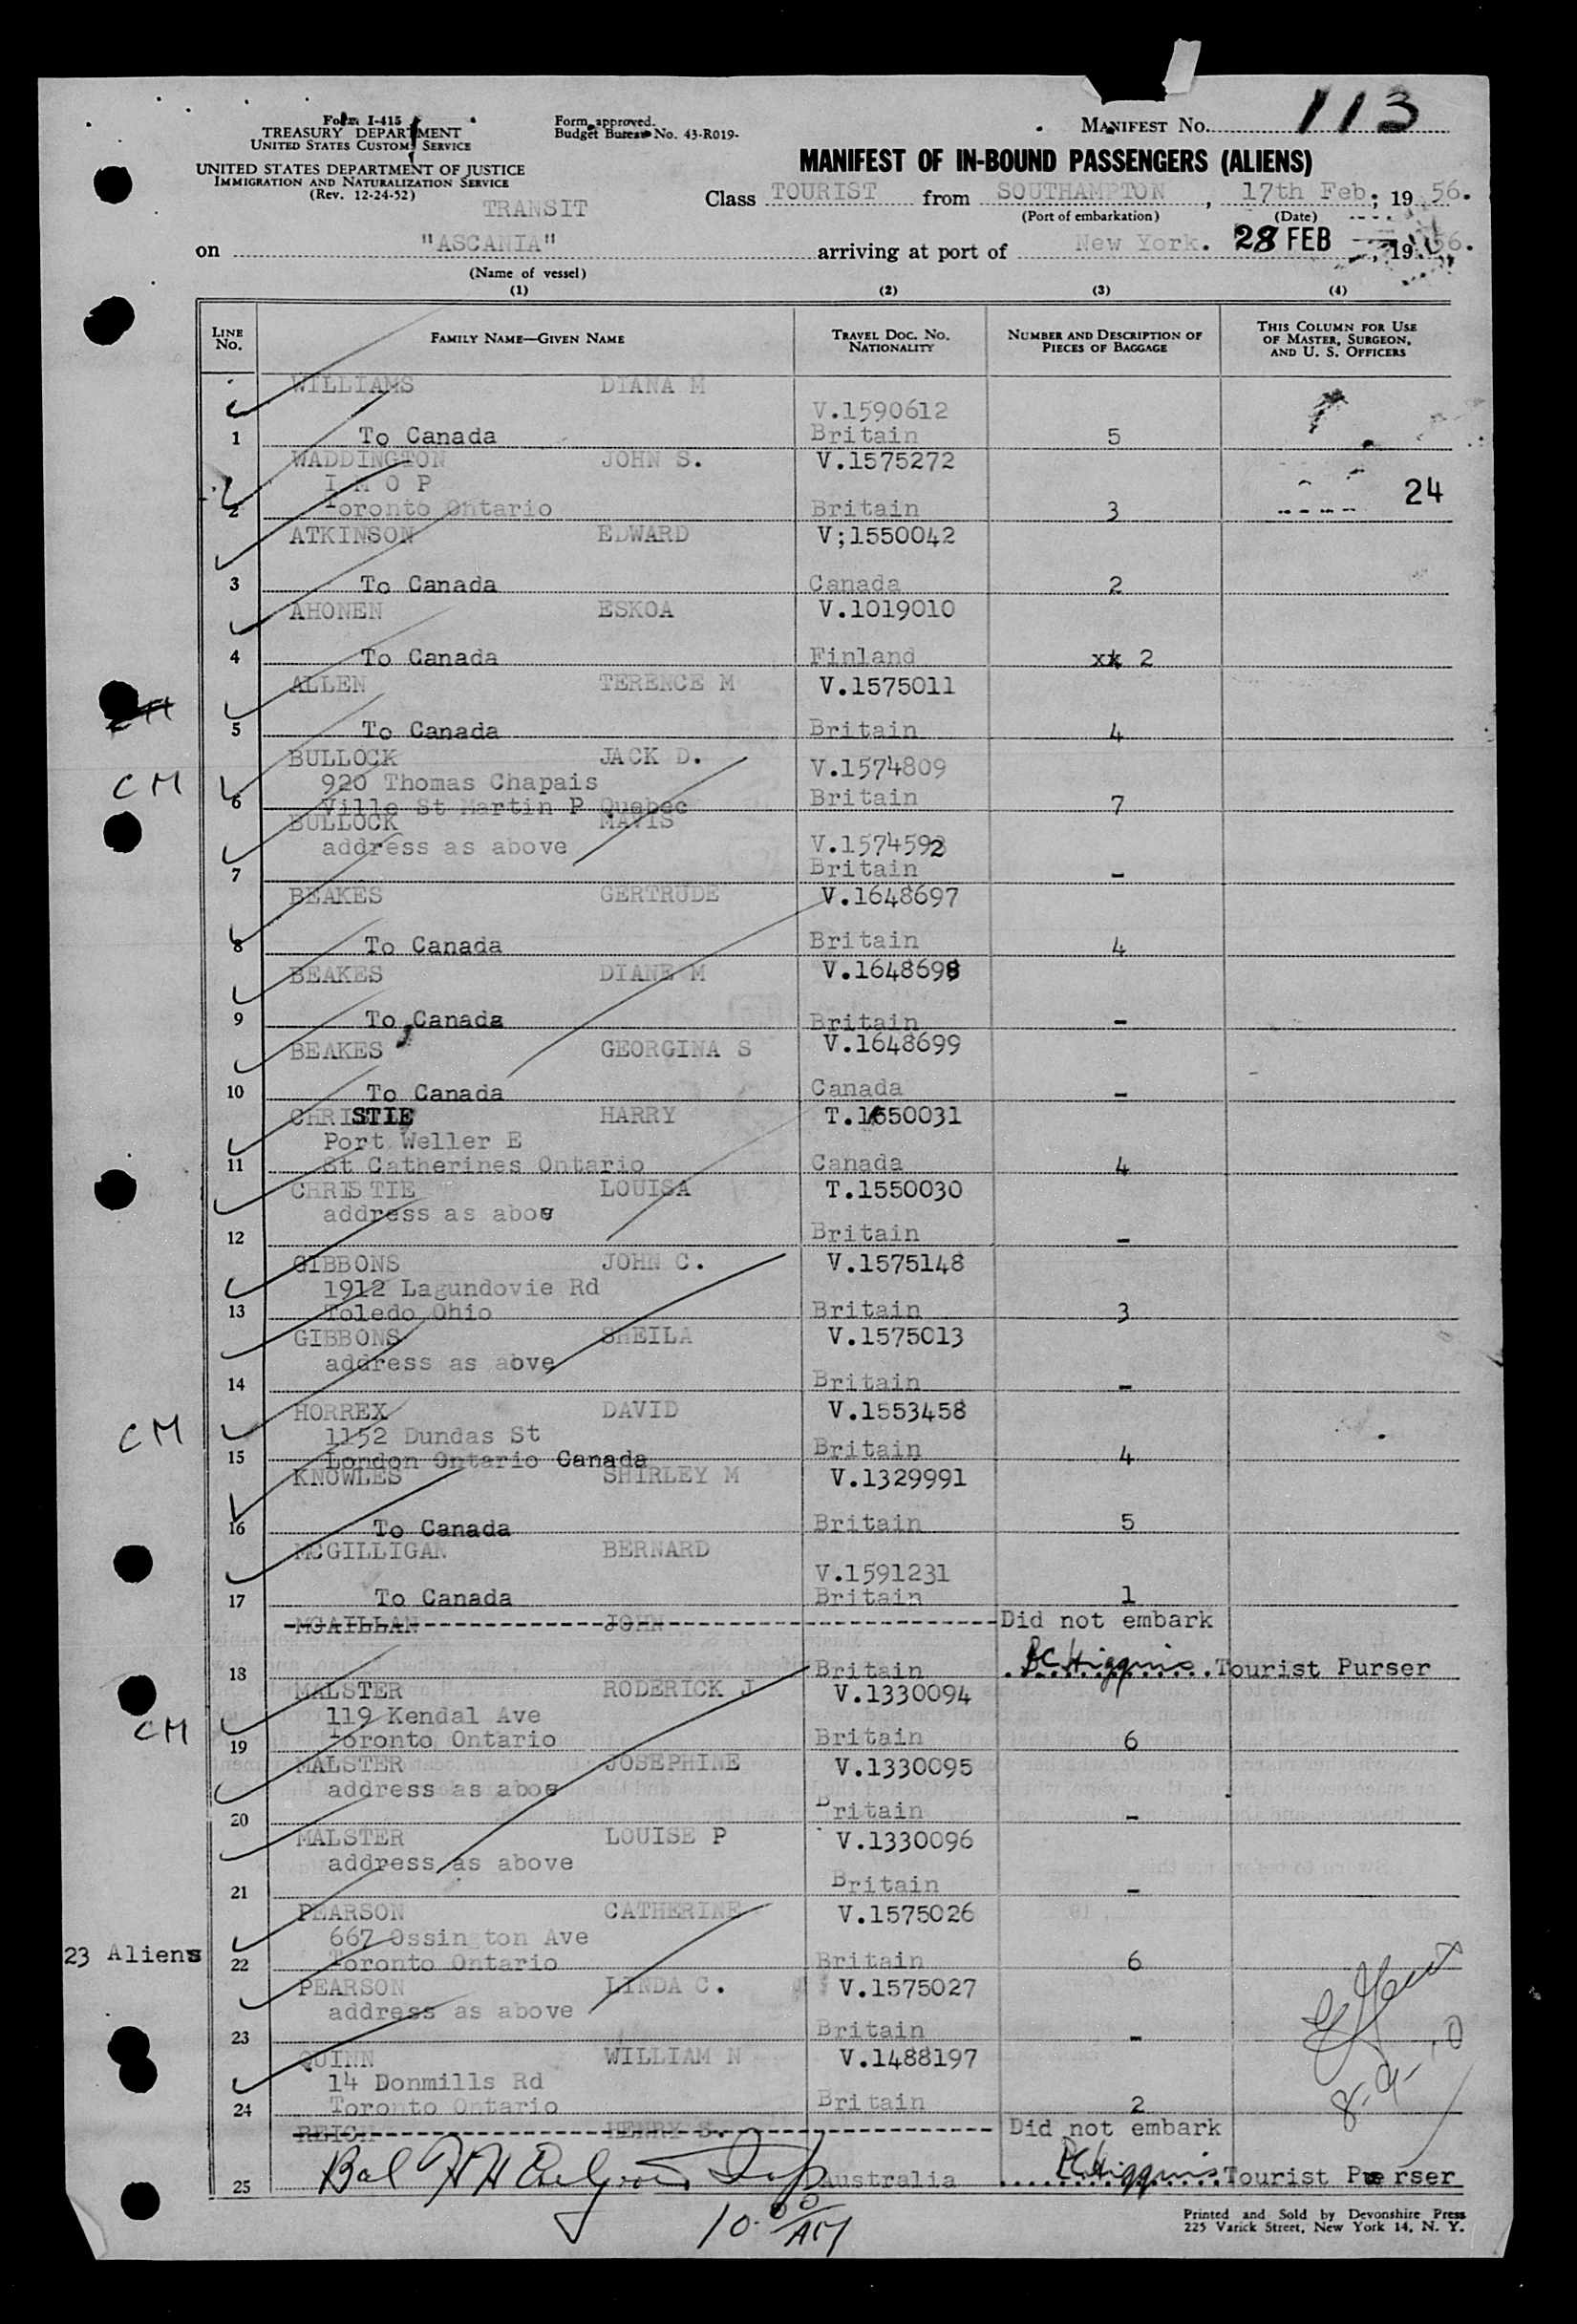 Form I-415
TREASURY DEPARTMENT
UNITED STATES CUSTOMS SERVICE
UNITED STATES DEPARTMENT OF JUSTICE
IMMIGRATION AND NATURALIZATION SERVICE
(Rev. 12-24-52)
Form approved.
Budget Bureau No. 43-R019-
MANIFEST No. 113
MANIFEST OF IN-BOUND PASSENGERS (ALIENS)
TRANSIT
Class TOURIST from SOUTHAMPTON, 17th Feb; 1956.
(Port of embarkation) (Date)
on "ASCANIA" arriving at port of New York. 28 FEB, 1956.
(Name of vessel)
(1) (2) (3) (4)
LINE No. FAMILY NAME—GIVEN NAME TRAVEL DOC. No. NATIONALITY NUMBER AND DESCRIPTION OF PIECES OF BAGGAGE THIS COLUMN FOR USE OF MASTER, SURGEON, AND U. S. OFFICERS
WILLIAMS DIANA M
V.1590612
1 To Canada Britain 5
WADDINGTON JOHN S. V.1575272
I M O P 24
2 Toronto Ontario Britain 3
ATKINSON EDWARD V;1550042
3 To Canada Canada 2
AHONEN ESKOA V.1019010
4 To Canada Finland xx 2
ALLEN TERENCE M V.1575011
5 To Canada Britain 4
BULLOCK JACK D. V.1574809
CM 920 Thomas Chapais
6 Ville St Martin P Quebec Britain 7
BULLOCK MAVIS
address as above V.1574592
7 Britain -
BEAKES GERTRUDE V.1648697
8 To Canada Britain 4
BEAKES DIANE M V.1648698
9 To Canada Britain -
BEAKES GEORGINA S V.1648699
10 To Canada Canada -
CHRISTIE HARRY T.1550031
Port Weller E
11 St Catherines Ontario Canada 4
CHRISTIE LOUISA T.1550030
address as above
12 Britain -
GIBBONS JOHN C. V.1575148
1912 Lagundovie Rd
13 Toledo Ohio Britain 3
GIBBONS SHEILA V.1575013
address as abve
14 Britain -
HORREX DAVID V.1553458
CM 1152 Dundas St
15 London Ontario Canada Britain 4
KNOWLES SHIRLEY M V.1329991
16 To Canada Britain 5
MCGILLIGAN BERNARD
V.1591231
17 To Canada Britain 1
MCAILLAN JOHN Did not embark
18 Britain BC Higgins Tourist Purser
MALSTER RODERICK J V.1330094
CM 119 Kendal Ave
19 Toronto Ontario Britain 6
MALSTER JOSEPHINE V.1330095
address as above
20 Britain -
MALSTER LOUISE P V.1330096
address as above
21 Britain -
PEARSON CATHERINE V.1575026
667 Ossington Ave
23 Aliens 22 Toronto Ontario Britain 6
PEARSON LINDA C. V.1575027
address as above
23 Britain -
QUINN WILLIAM N V.1488197
14 Donmills Rd
24 Toronto Ontario Britain 2
REICH HENRY S. Did not embark
25 Australia BC Higgins Tourist Purser
10.00 AM
Printed and Sold by Devonshire Press
225 Varick Street, New York 14, N. Y.